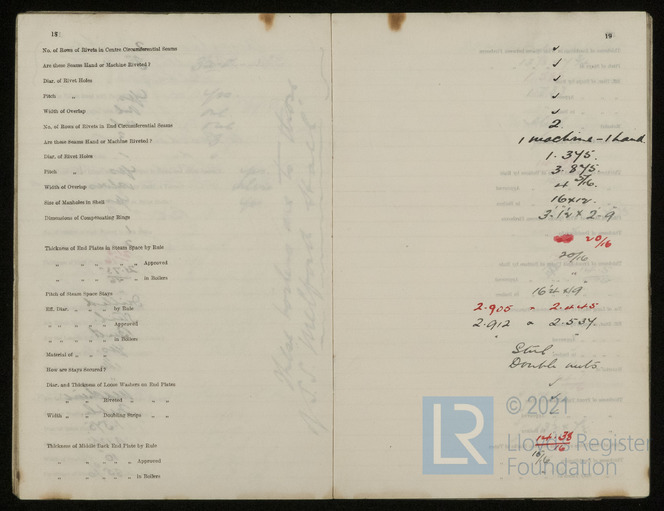 18
19
No. of Rows of Rivets in Centre Circumferential Seams ✓
Are these Seams Hand or Machine Riveted? ✓
Diar. of Rivet Holes ✓
Pitch „ ✓
Width of Overlap ✓
No. of Rows of Rivets in End Circumferential Seams 2.
Are these Seams Hand or Machine Riveted? 1 machine - 1 hand.
Diar. of Rivet Holes 1.375.
Pitch „ 3.875.
Width of Overlap 4 5/16.
Size of Manholes in Shell 16 x 12.
Dimensions of Compensating Rings
Thickness of End Plates in Steam Space by Rule 20/16
„ „ „ „ „ „ Approved 20/16
„ „ „ „ „ „ in Boilers "
Pitch of Steam Space Stays
Eff. Diar. „ „ „ by Rule 2.905 2.445
„ „ „ „ „ Approved 2.912 2.537.
„ „ „ „ „ in Boilers
Material of „ „ Steel
How are Stays Secured? Double nuts
Diar. and Thickness of Loose Washers on End Plates ✓
„ „ Riveted „ „ ✓
Width „ „ Doubling Strips „ „
Thickness of Middle Back End Plate by Rule 14.38/16
„ „ „ „ „ Approved
„ „ „ „ „ in Boilers
LR
© 2021
Lloyd's Register
Foundation